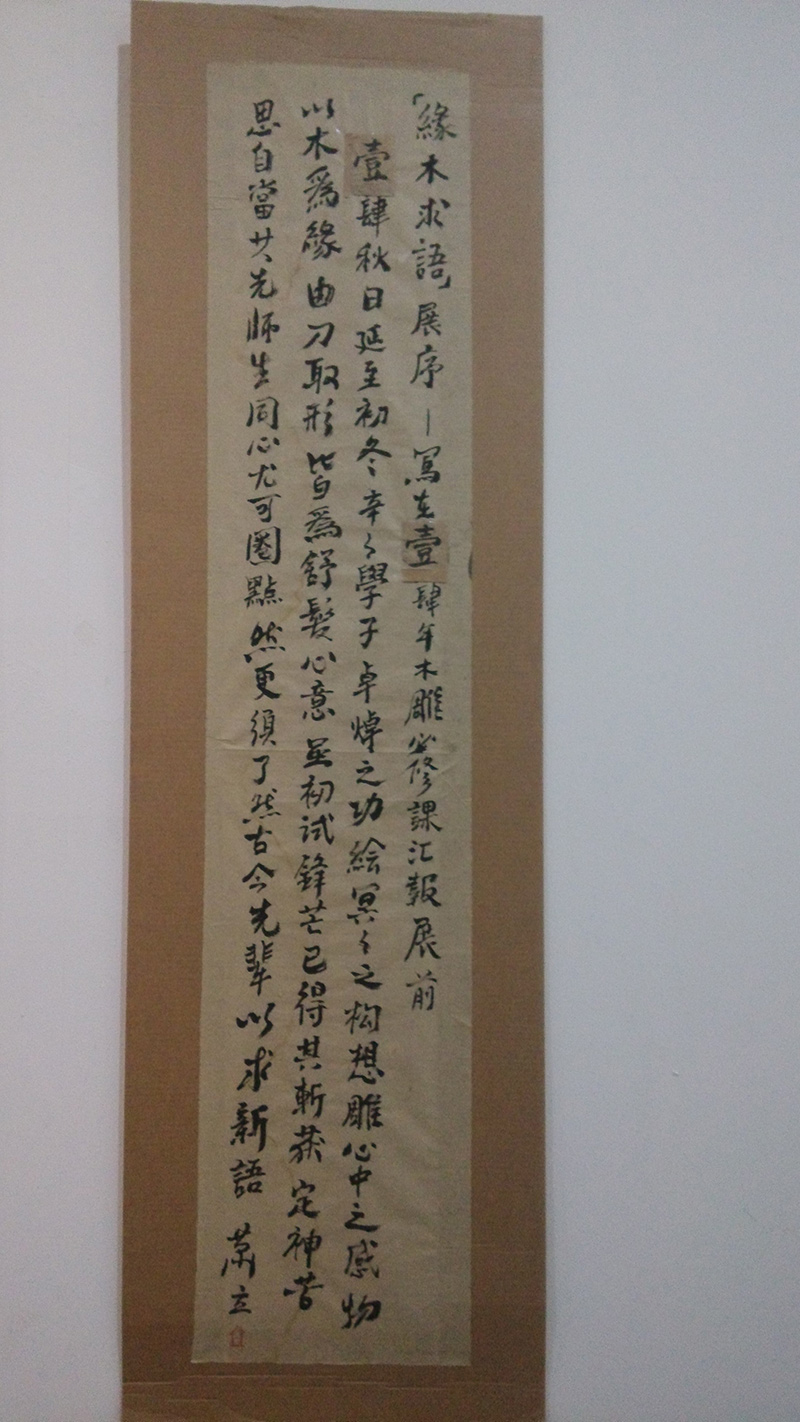 「緣木求語」展序—寫在壹肆年木雕必修課汇報展前
壹肆秋日延至初冬辛々學子卓焯之功繪冥々之构想雕心中之感物
以木爲緣由刀取形皆爲舒髮心意並初试鋒芒已得其斬获定神苦
思自當其先師生同心尤可圈點然更須了然古今先辈以求新語 蕭立